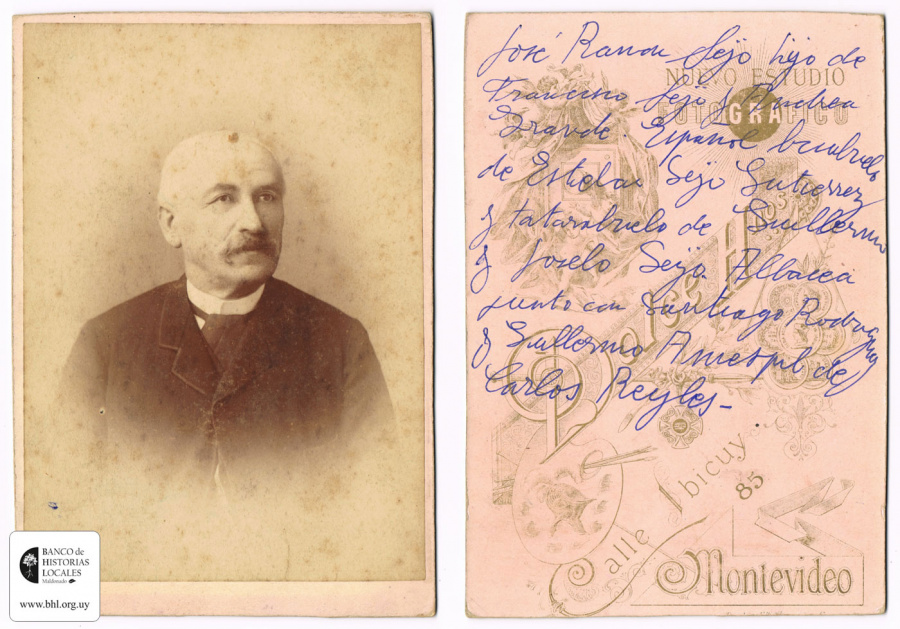 José Ramon Sejo hijo de
Francisco Sejo y Andrea
Grande. Español bisabuelo
de Estela Sejo Gutierrez
y tatarabuelo de Guillermo
y Joselo Seijo. Albacea
junto con Santiago Rodriguez
y Guillermo de
Carlos Reyles-
NUEVO ESTUDIO
FOTOGRAFICO
José
Calle Ibicuy
85
Montevideo
BANCO de
HISTORIAS
LOCALES
Maldonado
www.bhl.org.uy